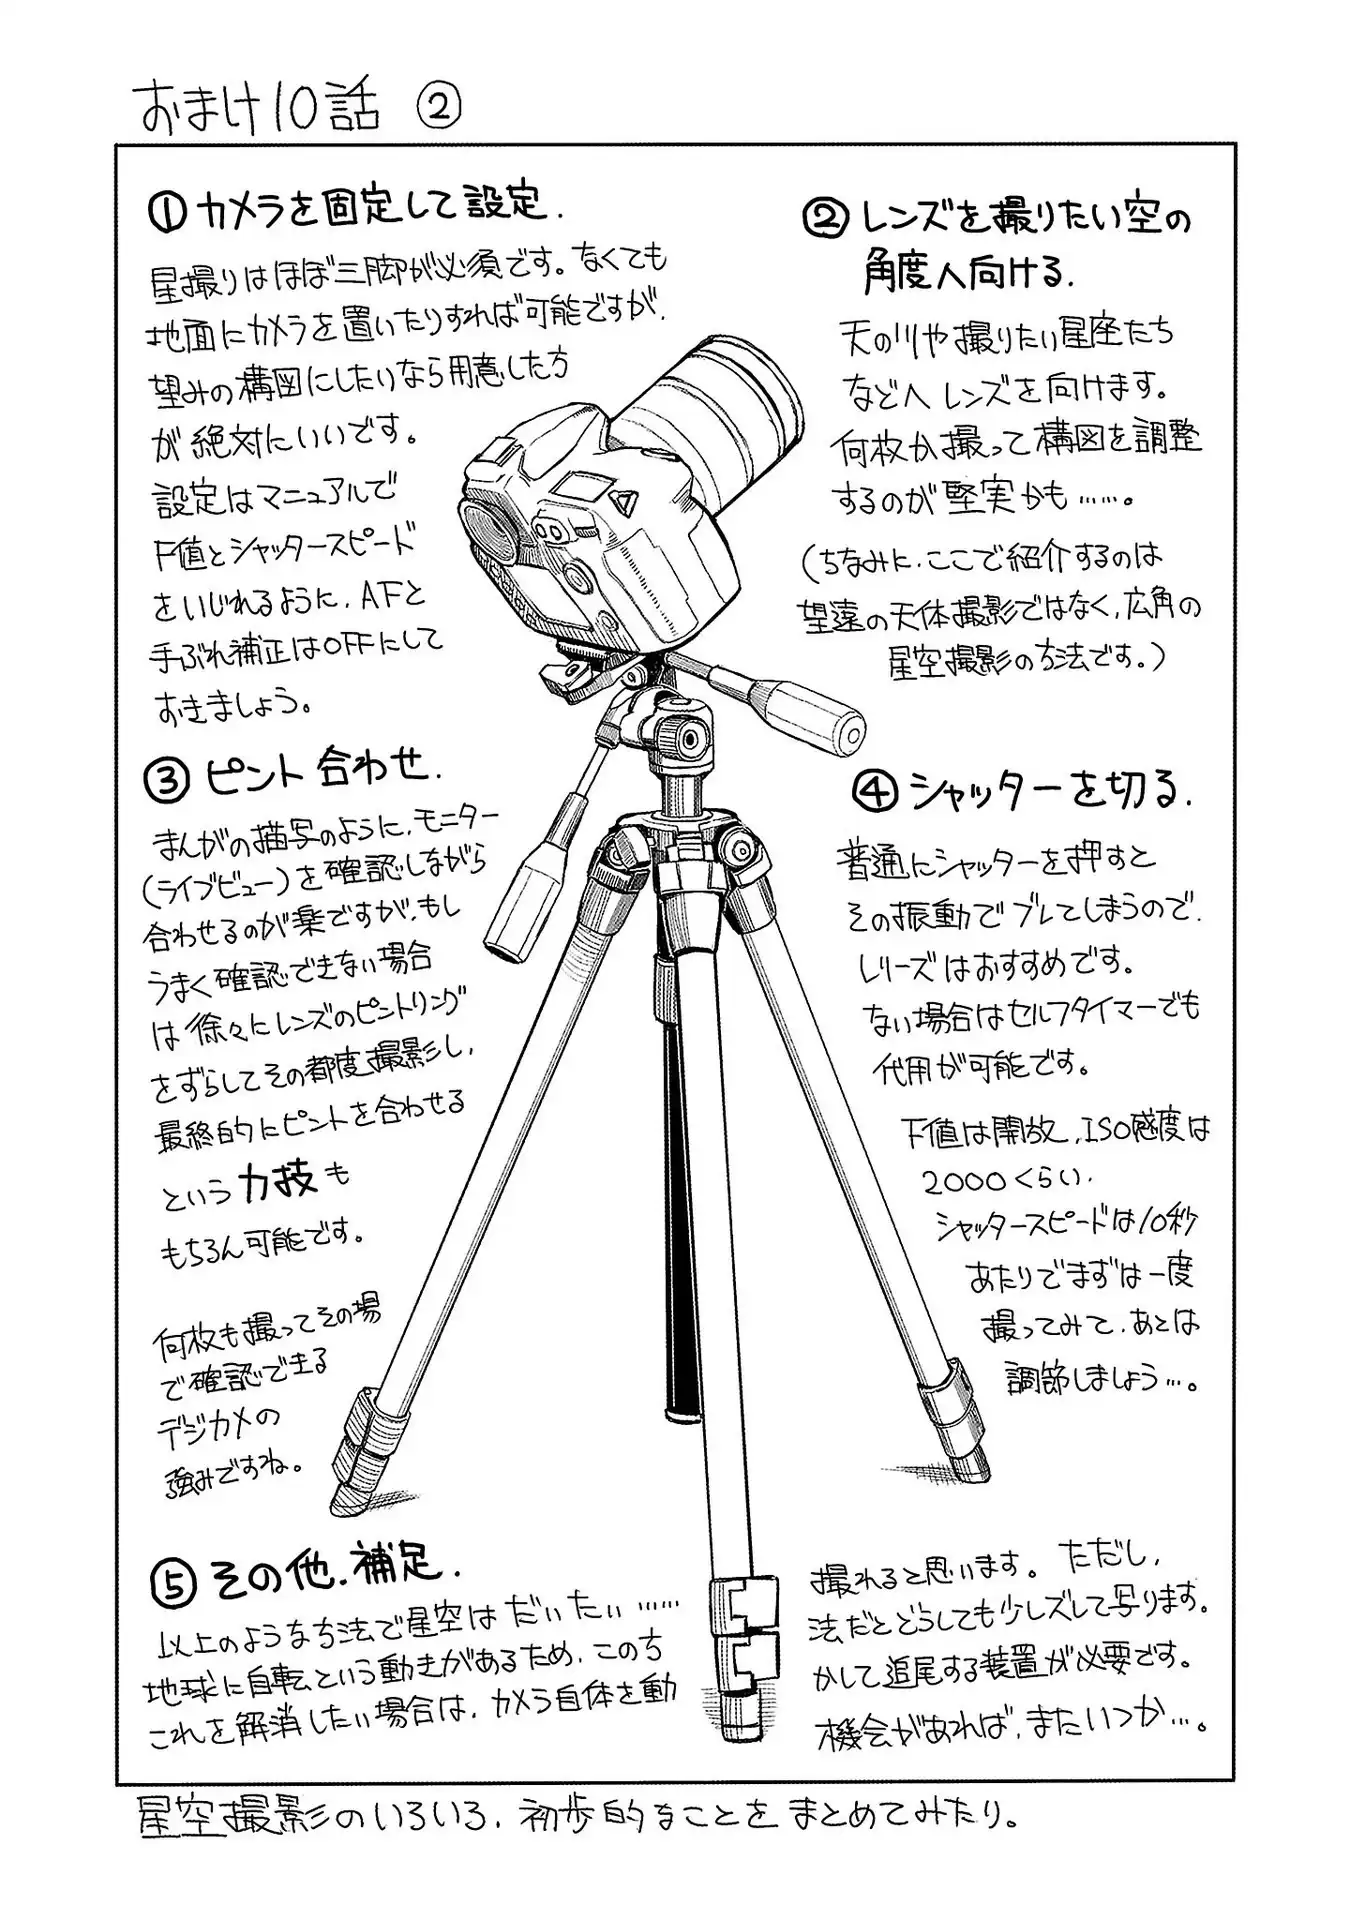 おまけ10話 ②
①カメラを固定して設定.
星撮りはほぼ三脚が必須です。なくても
地面にカメラを置いたりすれば可能ですが、
望みの構図にしたいなら用意した方
が絶対にいいです。
設定はマニュアルで
F値とシャッタースピード
をいじれるように、AFと
手ぶれ補正はOFFにして
おきましょう。
②レンズを撮りたい空の
角度へ向ける.
天の川や撮りたい星座たち
などへレンズを向けます。
何枚か撮って構図を調整
するのが堅実かも……。
(ちなみに、ここで紹介するのは
望遠の天体撮影ではなく、広角の
星空撮影の方法です。)
③ピント合わせ.
まんがの描写のように、モニター
(ライブビュー)を確認しながら
合わせるのが楽ですが、もし
うまく確認できない場合
は徐々にレンズのピントリング
をずらしてその都度撮影し、
最終的にピントを合わせる
という力技も
もちろん可能です。
何枚も撮ってその場
で確認できる
デジカメの
強みですね。
④シャッターを切る.
普通にシャッターを押すと
その振動でブレてしまうので、
レリーズはおすすめです。
ない場合はセルフタイマーでも
代用が可能です。
F値は開放、ISO感度は
2000くらい、
シャッタースピードは10秒
あたりでまずは一度
撮ってみて、あとは
調節しましょう…。
⑤その他、補足.
以上のような方法で星空はだいたい……
撮れると思います。ただし、
地球に自転という動きがあるため、この方
法だとどうしても少しズレて写ります。
これを解消したい場合は、カメラ自体を動
かして追尾する装置が必要です。
機会があれば、またいつか…。
星空撮影のいろいろ、初歩的なことをまとめてみたり。